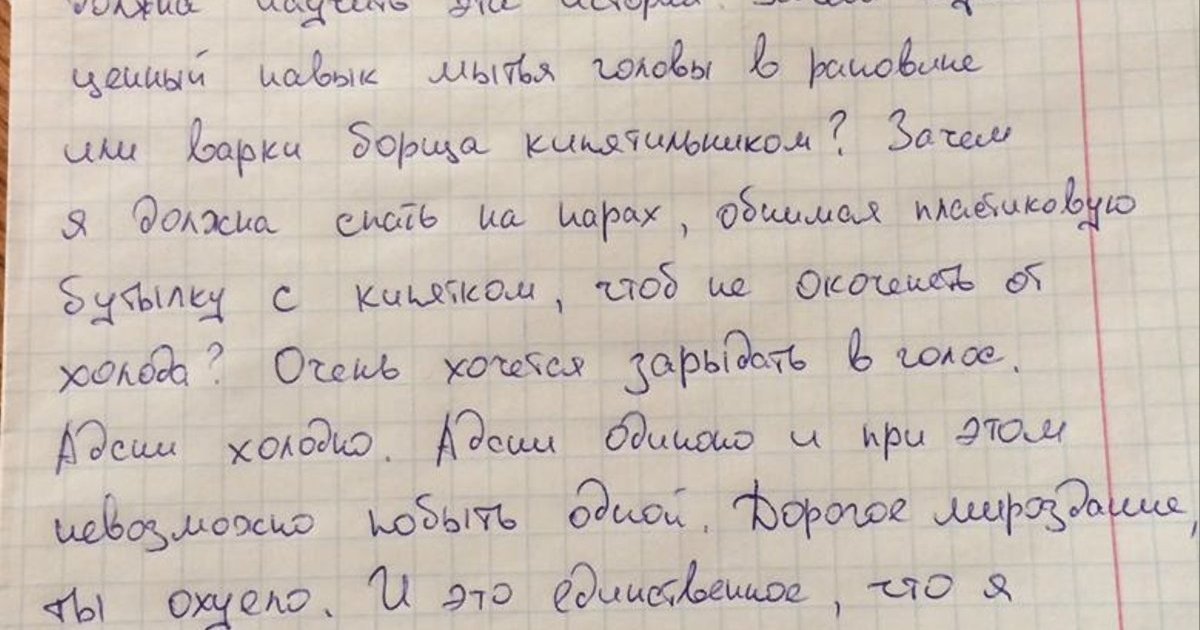 должна научить эта история
ценный навык мытья головы в раковине
или варки борща кипятильником? Зачем
я должна спать на нарах, обнимая пластиковую
бутылку с кипятком, чтоб не окоченеть от
холода? Очень хочется зарыдать в голос.
Адски холодно. Адски одиноко и при этом
невозможно побыть одной. Дорогое мироздание,
ты охуело. И это единственное, что я